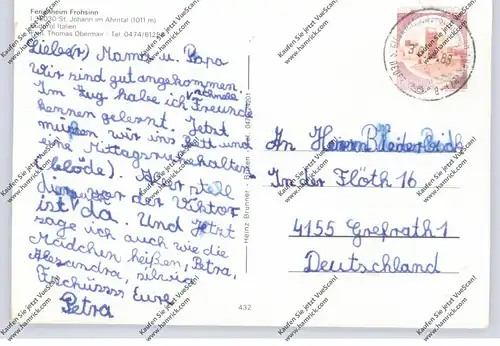 Ferienheim Frohsinn
I-39030 St. Johann im Ahrntal (1011 m)
Südtirol Italien
Fam. Thomas Obermair - Tel. 0474/61
Liebe(r) Mama u. Papa
Wir sind gut angekommen.
Im Zug habe ich schnell Freunde
kennen gelernt. Jetzt
müssen wir ins Bett und
eine Mittagsruhe halten
(blöde). Aber stell
dir vor der Viktor
ist da. Und Jetzt
sage ich auch wie die
Mädchen heißen, Petra,
Alexandra, Silvia
Tschüsss Eure
Petra
Heinz Brunner - Brixen
432
An Herrn
In der Flöth 16
4155 Grefrath 1
Deutschland
Kaufen Sie jetzt VueScan!
www.hamrick.com